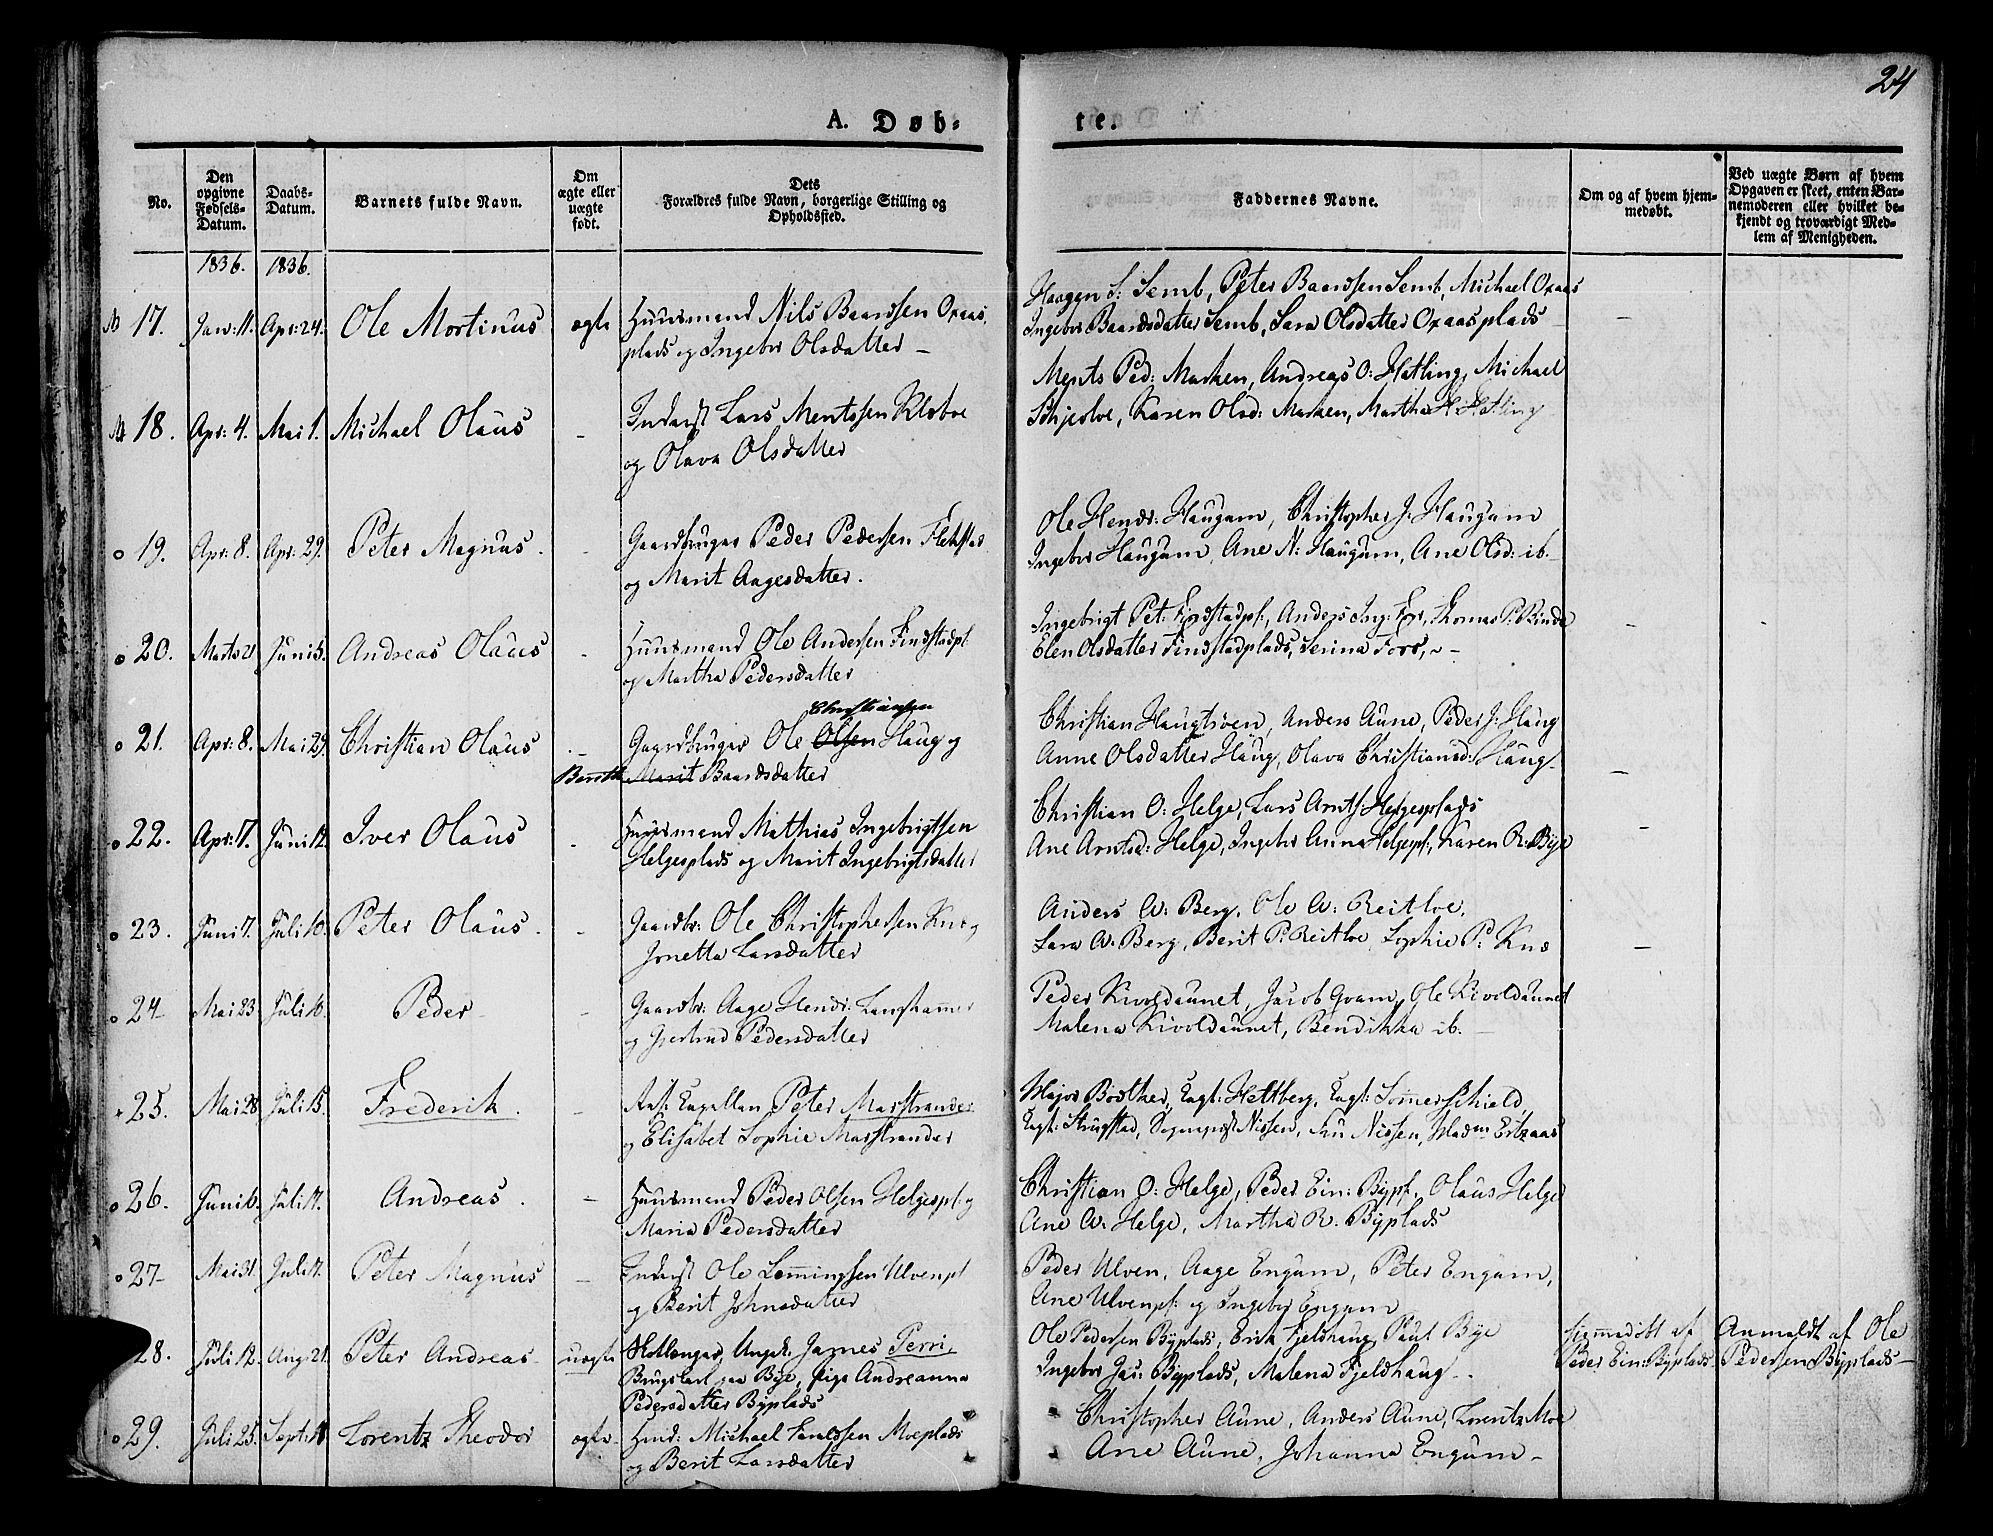 24
A. Døb-
te.
No.
Den opgivne Fødsels-Datum.
Daabs-Datum.
Barnets fulde Navn.
Om ægte eller uægte født.
Dets Forældres fulde Navn, borgerlige Stilling og Opholdssted.
Faddernes Navne.
Om og af hvem hjem-medøbt.
Ved uægte Børn af hvem Opgaven er skeet, enten Bar-nemoderen eller hvilket be-kjendt og troværdigt Med-lem af Menigheden.
1836. 1836.
17. Jan: 11. Apr: 24. Ole Mortinus ægte Huusmand Nils Baardsen Oxaas
plads og Ingebor Olsdatter –
Haagen S: Semb, Peter Baardsen Semb, Michael Oxaas
Ingebor Baardsdatter Semb, Sara Olsdatter Oxaasplads –
18. Apr: 4. Mai 1. Michael Olaus – Inderst Lars Mentssen Klæboe
og Olava Olsdatter
Ments Ped: Marken, Andreas O: Hatling, Michael
Karen Olsd: Marken, Martha H: Hatling
19. Apr: 8. Apr: 29. Peter Magnus. – Gaardbruger Peder Pedersen Flekstad
og Marit Aagesdatter.
Ole Henr: Haugum, Christopher J: Haugum
Ingebor Haugum, Ane N: Haugum, Ane Olsd: ib.
20. Marts 21 Juni 5. Andreas Olaus – Huusmand Ole Andersen Findstadpl.
og Martha Pedersdatter
Ingebrigt Pet: Findstadpl:, Anders Ing: For, Thomas P: Rinde
Elen Olsdatter Findstadplads, Serina Fors, –
21. Apr: 8. Mai 29. Christian Olaus – Gaardbruger Ole Olsen Christiansen Haug og
Bereth Marit Baardsdatter
Christian Haugtrøen, Anders Aune, Peder J: Haug
Anne Olsdatter Haug, Olava Christiansd: Haug –
22. Apr: 17. Juni 12. Iver Olaus – Huusmand Mathias Ingebrigtsen
Helgesplads og Marit Ingebrigtsdatter
Christian O: Helge, Lars Arnts: Helgesplads
Ane Arntsd: Helge, Ingebor Anna Helgespl:, Karen R: Bye
23. Juni 7. Juli 10. Peter Olaus. – Gaardbr: Ole Christophersen Kne og
Jonetta Larsdatter
Anders A: Berg, Ole A: Reitloe,
Sara A: Berg, Berit P: Reitloe, Sophie P: Kne
24 Mai 23. Juli 10. Peder – Gaardbr: Aage Henr: Langhammer
og Gjertrud Pedersdatter
Peder Kivoldaunet, Jacob Qvam, Ole Kivoldaunet
Malena Kivoldaunet, Bendikka ib. –
25. Mai 28. Juli 15. Frederik. – Res: Capellan Peter Marstrander
og Elisabet Sophie Marstrander
Major Capt: Hettberg, Capt: Sommerschield,
Capt: Strugstad, Nissen, Fru Nissen,
26. Juni 6. Juli 17. Andreas. – Huusmand Peder Olsen Helgespl: og
Maria Pedersdatter
Christian O: Helge, Peder Ein: Bypl:, Olaus Helge
Ane A: Helge, Martha R. Byplads
27 Mai 31. Juli 17. Peter Magnus – Inderst Ole Lemmingsen Ulvenpl
og Berit Johnsdatter
Peder Ulven, Aage Engum, Peter Engum,
Ane Ulvenpl: og Ingebor Engum
28. Juli 12. Aug: 21. Peter Andreas – uægte Ungk: James Perri,
paa Bye, Pige Andreanna
Pedersdatter Byplads
Ole Pedersen Byplads, Erik Fjeldhaug, Paul Bye
Ingebor Jac: Byplads, Malena Fjeldhaug –
Hjemmedøbt af
Peder Ein: Byplads.
Anmeldt af Ole
Pedersen Byplads –
29. Juli 25. Sept: 11 Lorentz Theodor ægte Huusm: Michael Moeplads
og Berit Larsdatter
Christopher Aune, Anders Aune, Lorentz Moe
Ane Aune, Johanna Engum –